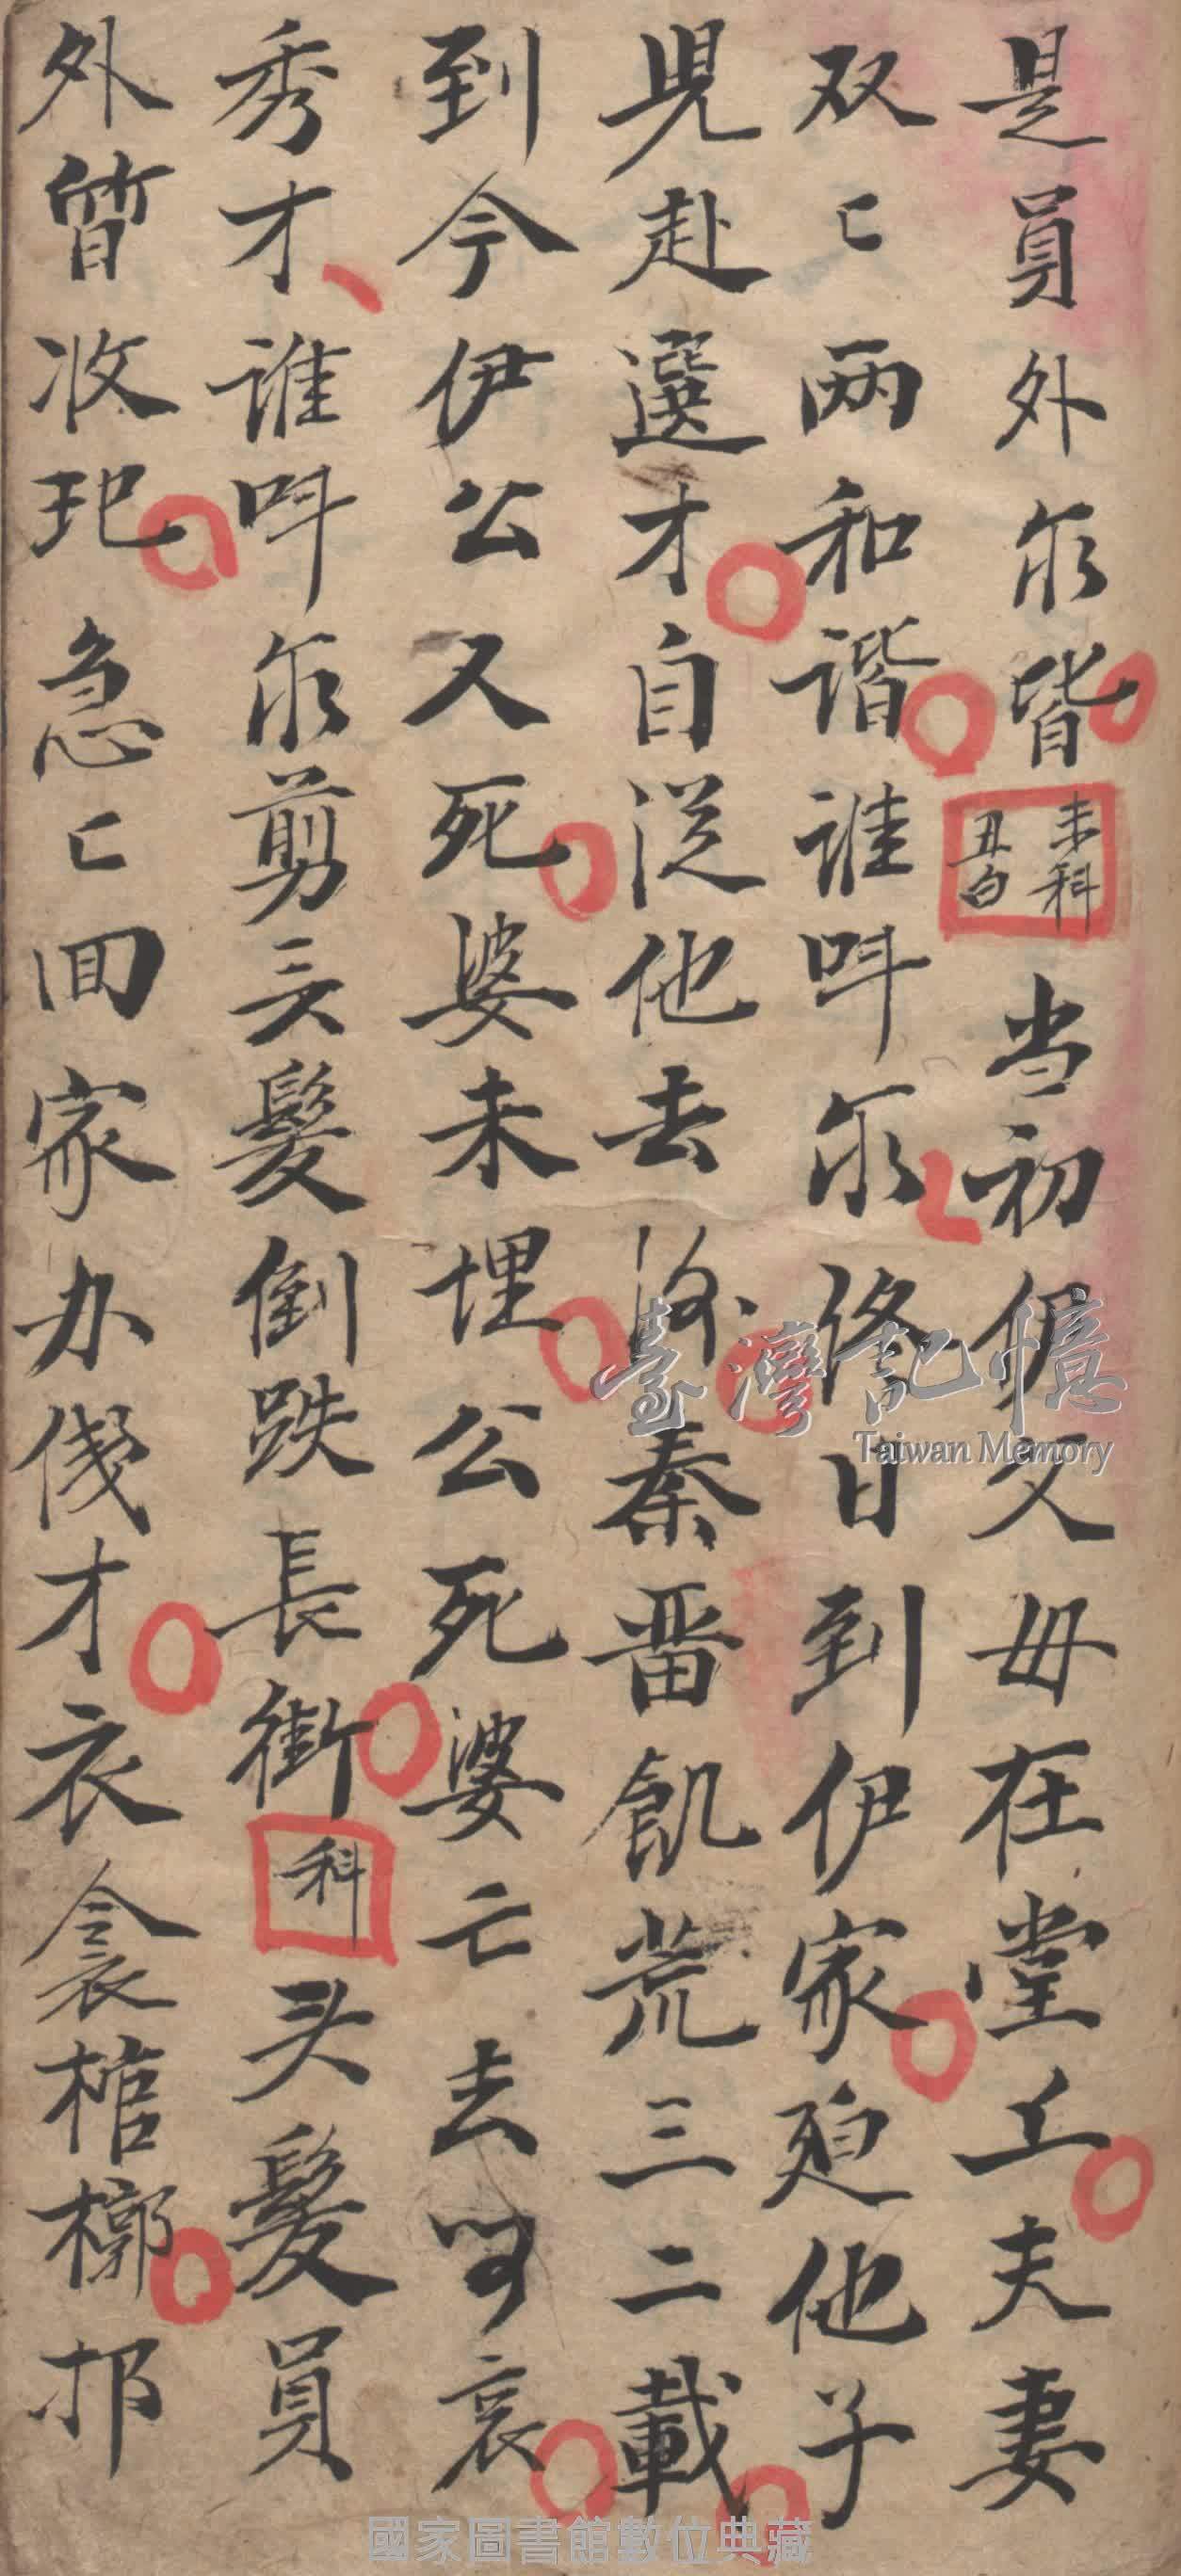 是員外尓皆未科丑白当初伊父母在堂上夫妻
双〻两和谐誰呌尓終日到伊家廹他子
児赴選才自従他去後秦晋飢荒三二載
到今伊公又死婆未埋公死婆亡去哀
秀才誰呌尓剪头髮倒跌長街科头髮員
外質收玘急〻回家办俴才衣衾棺槨
臺灣記憶
Taiwan Memory
國家圖書館數位典藏